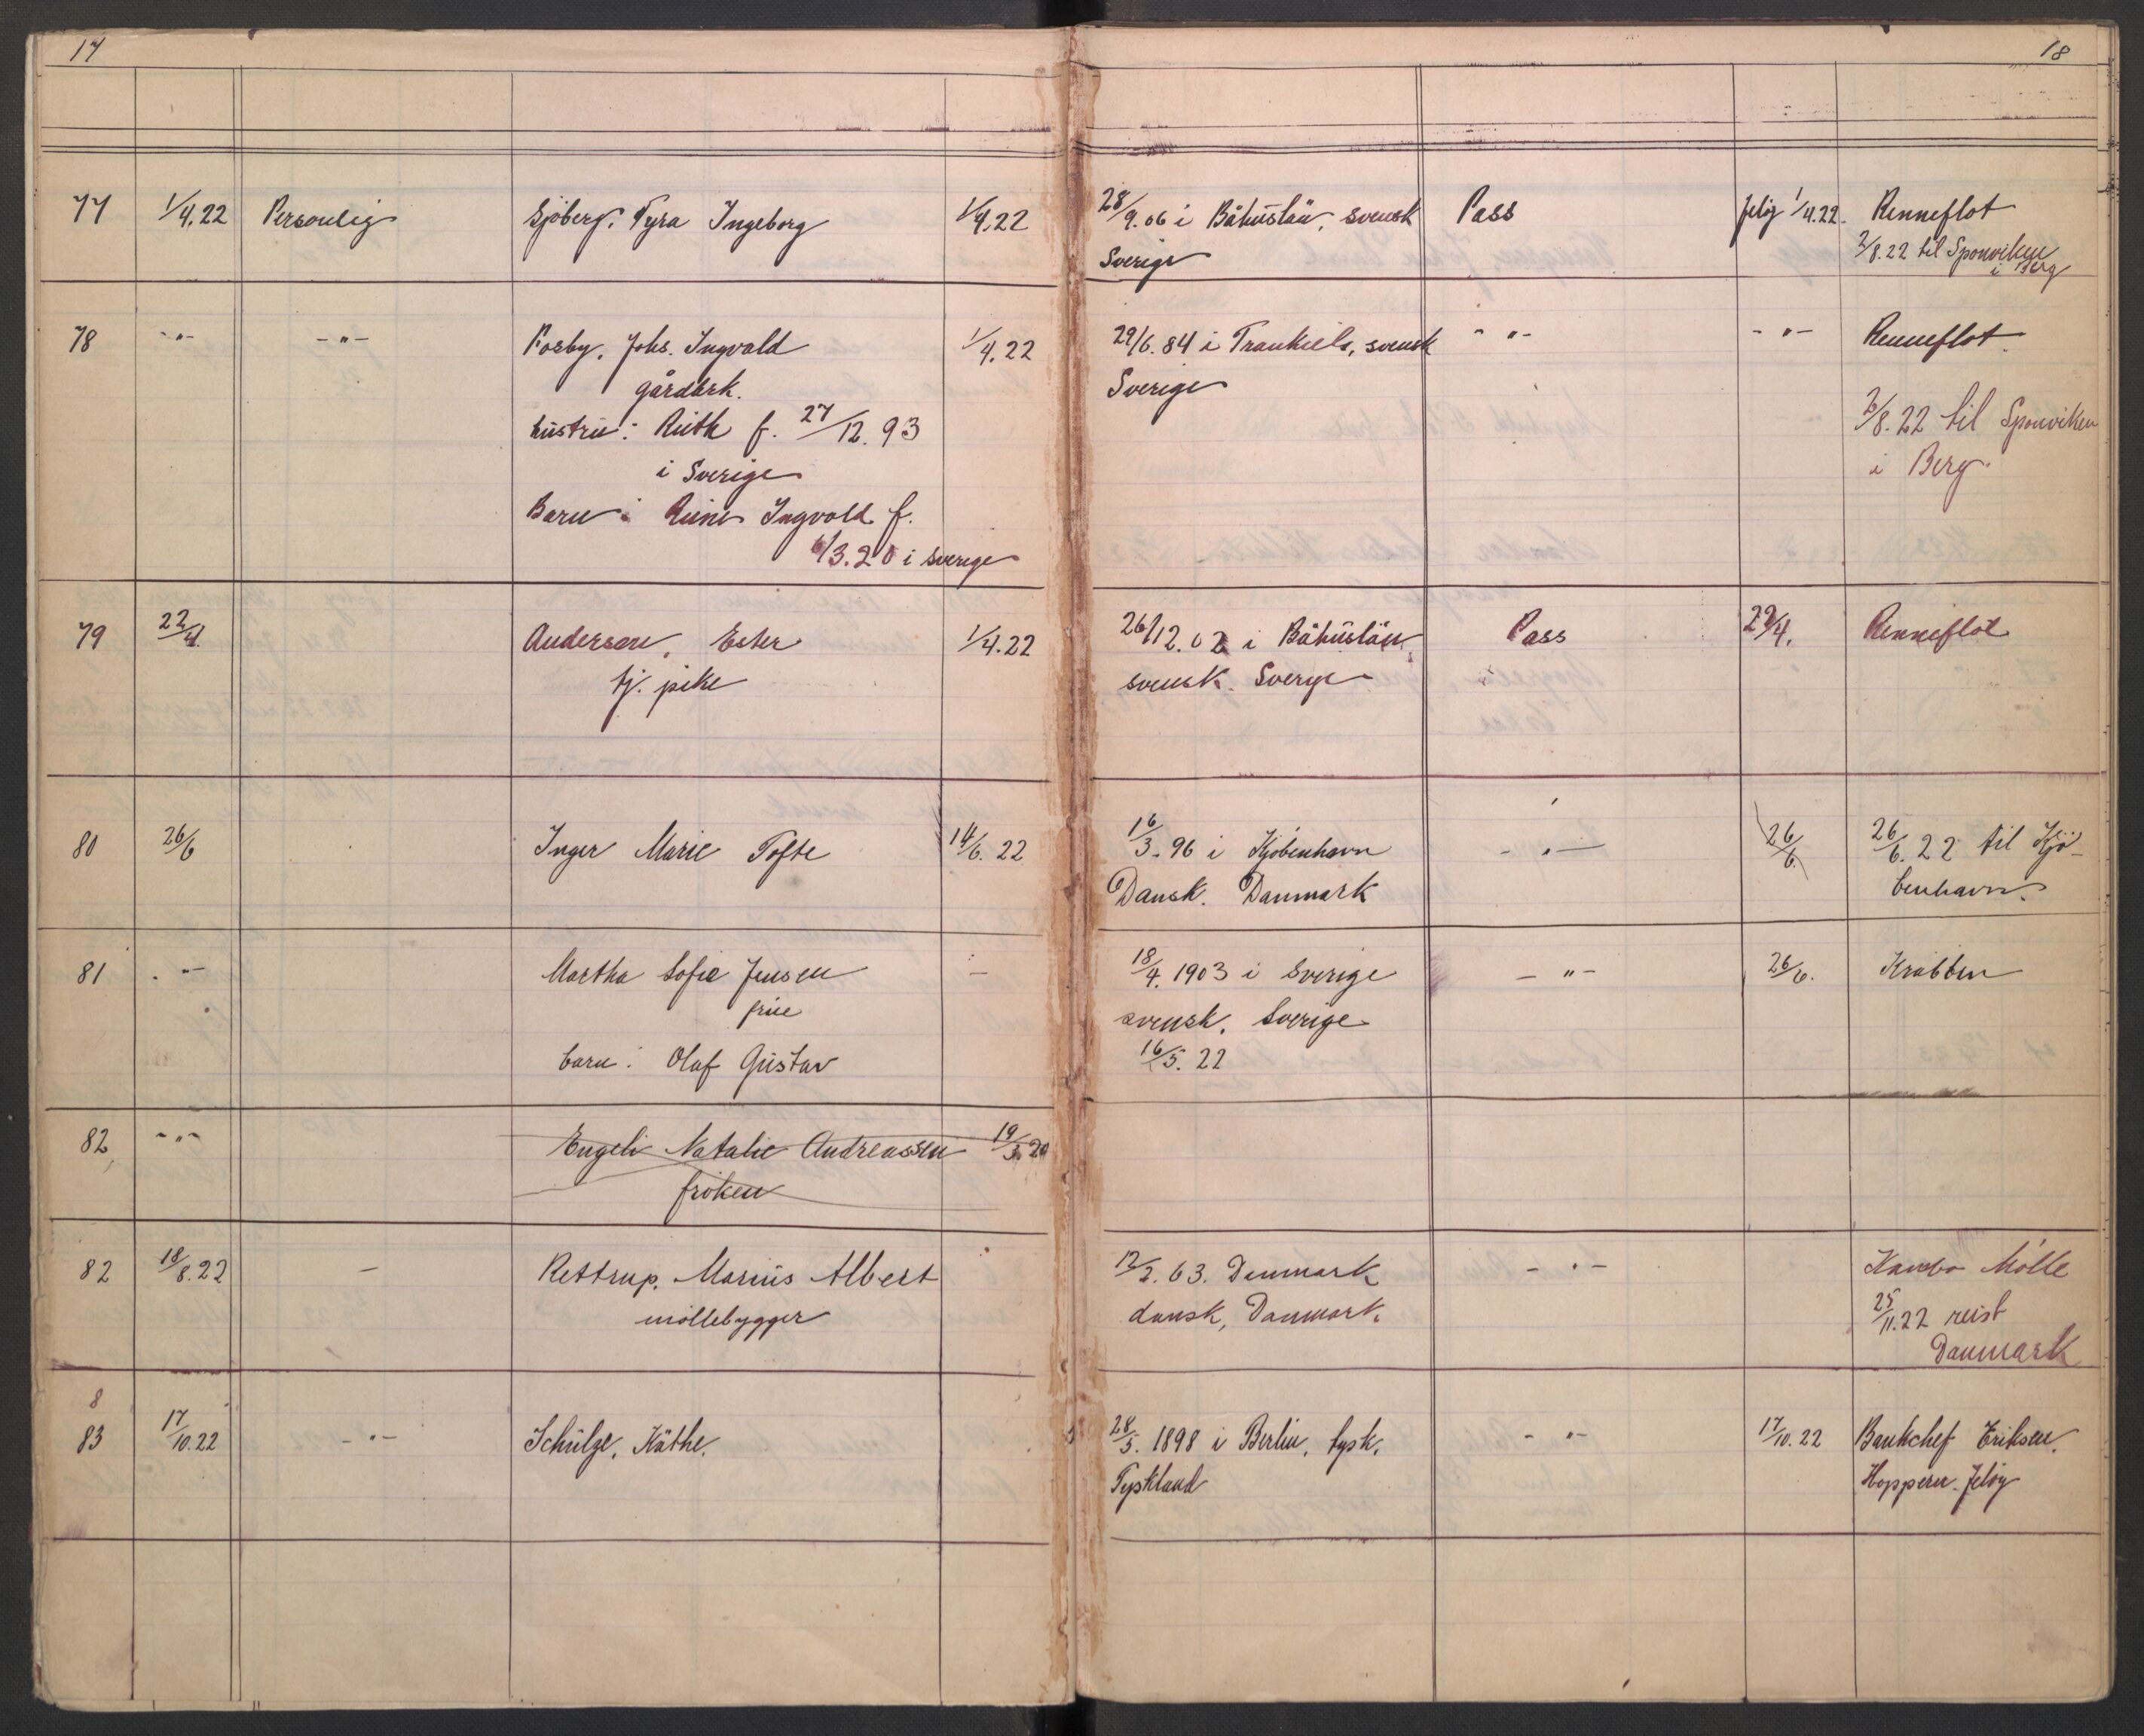 17
18
77 1/4.22 Personlig Sjöberg, Tyra Ingeborg 1/4.22 28/9.06 i Båhuslän, svensk Pass Jelöy 1/4.22. Renneflot
Sverige 2/8.22 til Sponviken
i Berg
78 -"- -"- Kosby, Johs. Ingvald 1/4.22 29/6.84 i Trankiels, svensk -"- -"- Renneflot
gårdbrk. Sverige
hustru: Ruth f. 27/12.93 2/8.22 til Sponviken
i Sverige i Berg.
Barn: Rune Ingvald f.
6/3.20 i Sverige
79 22/4. Anderson, Ester 1/4.22 26/12.02 i Båhuslän Pass 22/4. Renneflot
tj. pike svensk. Sverge
80 26/6 Inger Marie Tofte 14/6.22 16/3.96 i Kjöbenhavn -"- 26/6. 26/6.22 til Kjö-
Dansk. Danmark benhavn.
81 -"- Martha Sofie Jensen - 18/4.1903 i Sverige -"- 26/6. Krabben
frue svensk. Sverige
barn: Olaf Gustav 16/5.22
82 -"- Engeli Natalie Andreassen 19/3.20
fröken
82 18/8.22 - Rettrup, Marius Albert 12/2.63. Denmark -"- Kambo Mölle
möllebygger dansk, Danmark. 25/11.22 reist
Danmark
8
83 17/10.22 -"- Schülze, Käthe. 28/5.1898 i Berlin, tysk. -"- 17/10.22 Bankchef Eriksen.
Tyskland Hoppern. Jelöy